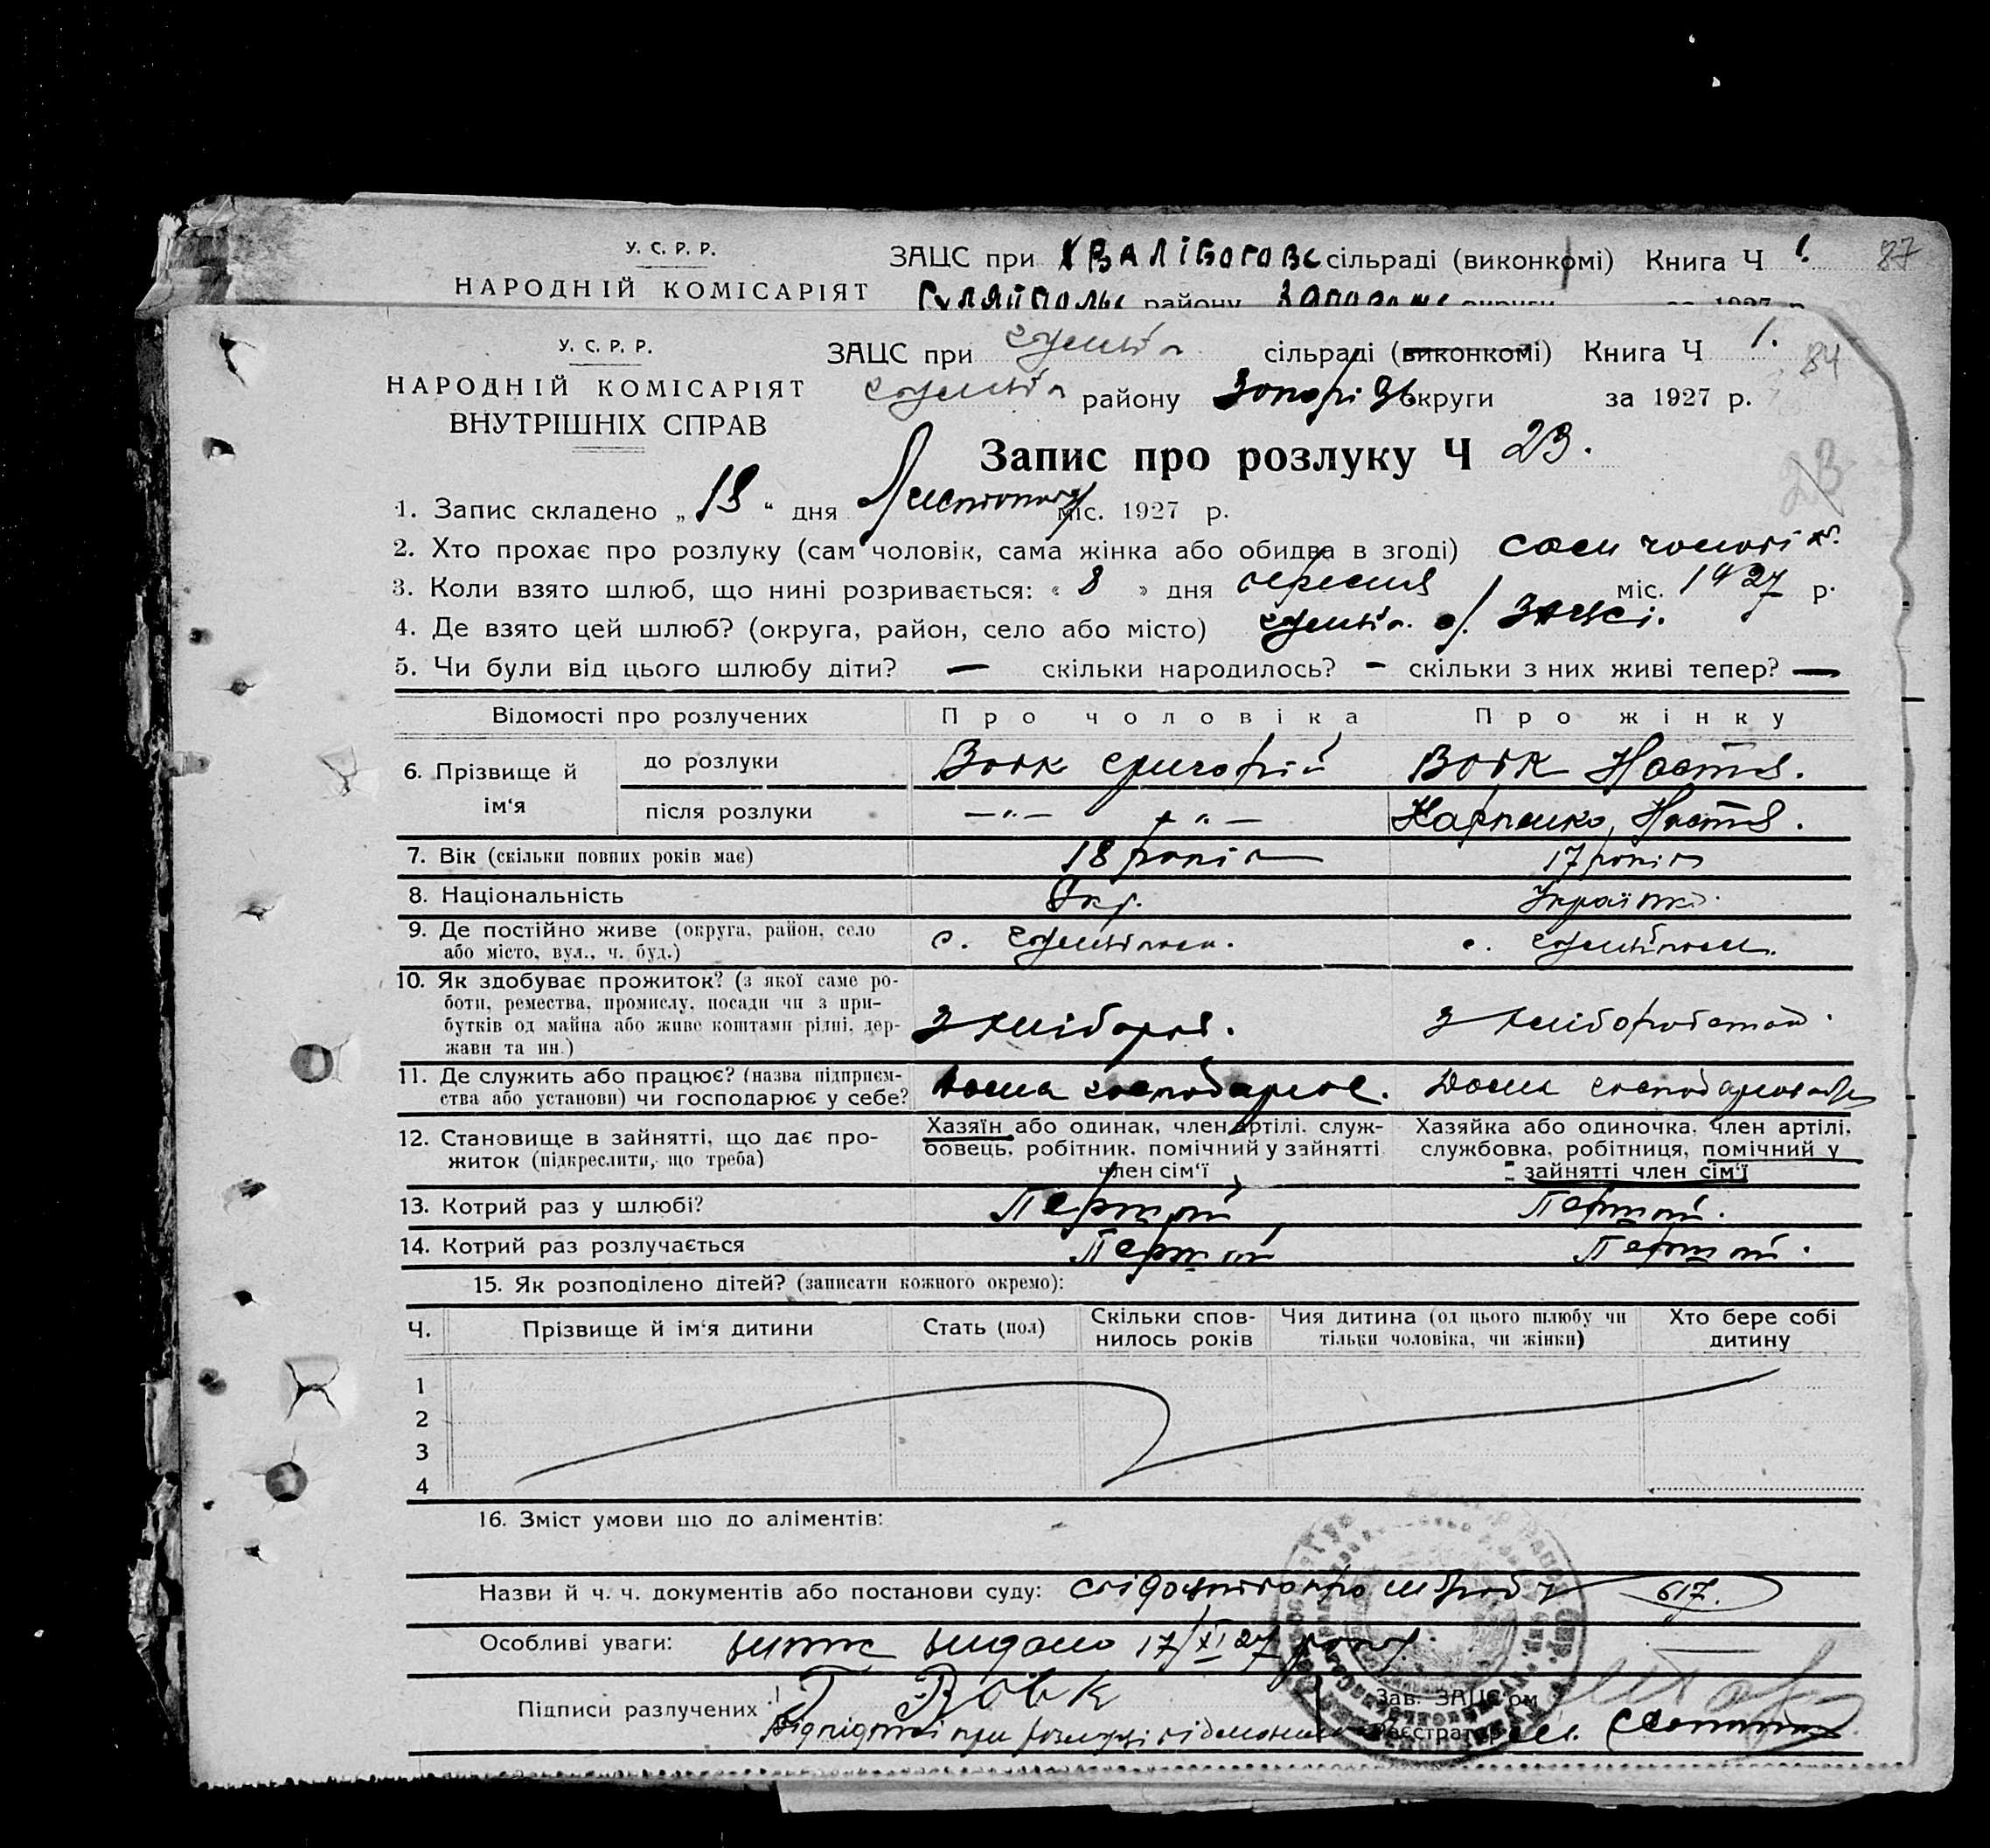 У. С. Р. Р.
НАРОДНІЙ КОМІСАРІЯТ
ЗАЦС при ХВАЛІБОГОВС сільраді (виконкомі) Книга Ч 1. 87
ГУЛЯЙПОЛЬС району
У. С. Р. Р.
НАРОДНІЙ КОМІСАРІЯТ
ВНУТРІШНІХ СПРАВ
ЗАЦС при сільраді (виконкомі) Книга Ч 1. 84
району Запоріз округи за 1927 р.
Запис про розлуку Ч 23.
23
1. Запис складено „ 13 “ дня Листопад міс. 1927 р.
2. Хто прохає про розлуку (сам чоловік, сама жінка або обидва в згоді) сам чоловік.
3. Коли взято шлюб, що нині розривається: « 8 » дня вересня міс. 1927 р.
4. Де взято цей шлюб? (округа, район, село або місто) ЗАЦСі.
5. Чи були від цього шлюбу діти? — скільки народилось? - скільки з них живі тепер? —
Відомості про розлучених Про чоловіка Про жінку
6. Прізвище й ім‘я
до розлуки Вовк Григорій Вовк Настя.
після розлуки —„— —„— Карпенко, Настя.
7. Вік (скільки повних років має) 18 років 17 років
8. Національність Укр. Українка.
9. Де постійно живе (округа, район, село
або місто, вул., ч. буд.) с. с.
10. Як здобуває прожиток? (з якої саме ро-
боти, ремества, промислу, посади чи з при-
бутків од майна або живе коштами рідні, дер-
жави та ин.)
З хлібороб. З хліборобства.
11. Де служить або працює? (назва підприєм-
ства або установи) чи господарює у себе?
Дома господарює. Дома
12. Становище в зайнятті, що дає про-
житок (підкреслити, що треба)
Хазяїн або одинак, член артілі, служ-
бовець, робітник, помічний у зайнятті
член сім‘ї
Хазяйка або одиночка, член артілі,
службовка, робітниця, помічний у
зайнятті член сім‘ї
13. Котрий раз у шлюбі? Перший Перший.
14. Котрий раз розлучається Перший Перший.
15. Як розподілено дітей? (записати кожного окремо):
Ч. Прізвище й ім‘я дитини Стать (пол) Скільки спов-
нилось років Чия дитина (од цього шлюбу чи
тільки чоловіка, чи жінки) Хто бере собі
дитину
1
2
3
4
16. Зміст умови що до аліментів: -
Назви й ч. ч. документів або постанови суду: свідоцтво про шлюб ч 617.
Особливі уваги: видано 17/XI 27 року.
Підписи разлучених Г Вовк
Зав. ЗАЦС‘ом
Реєстратор